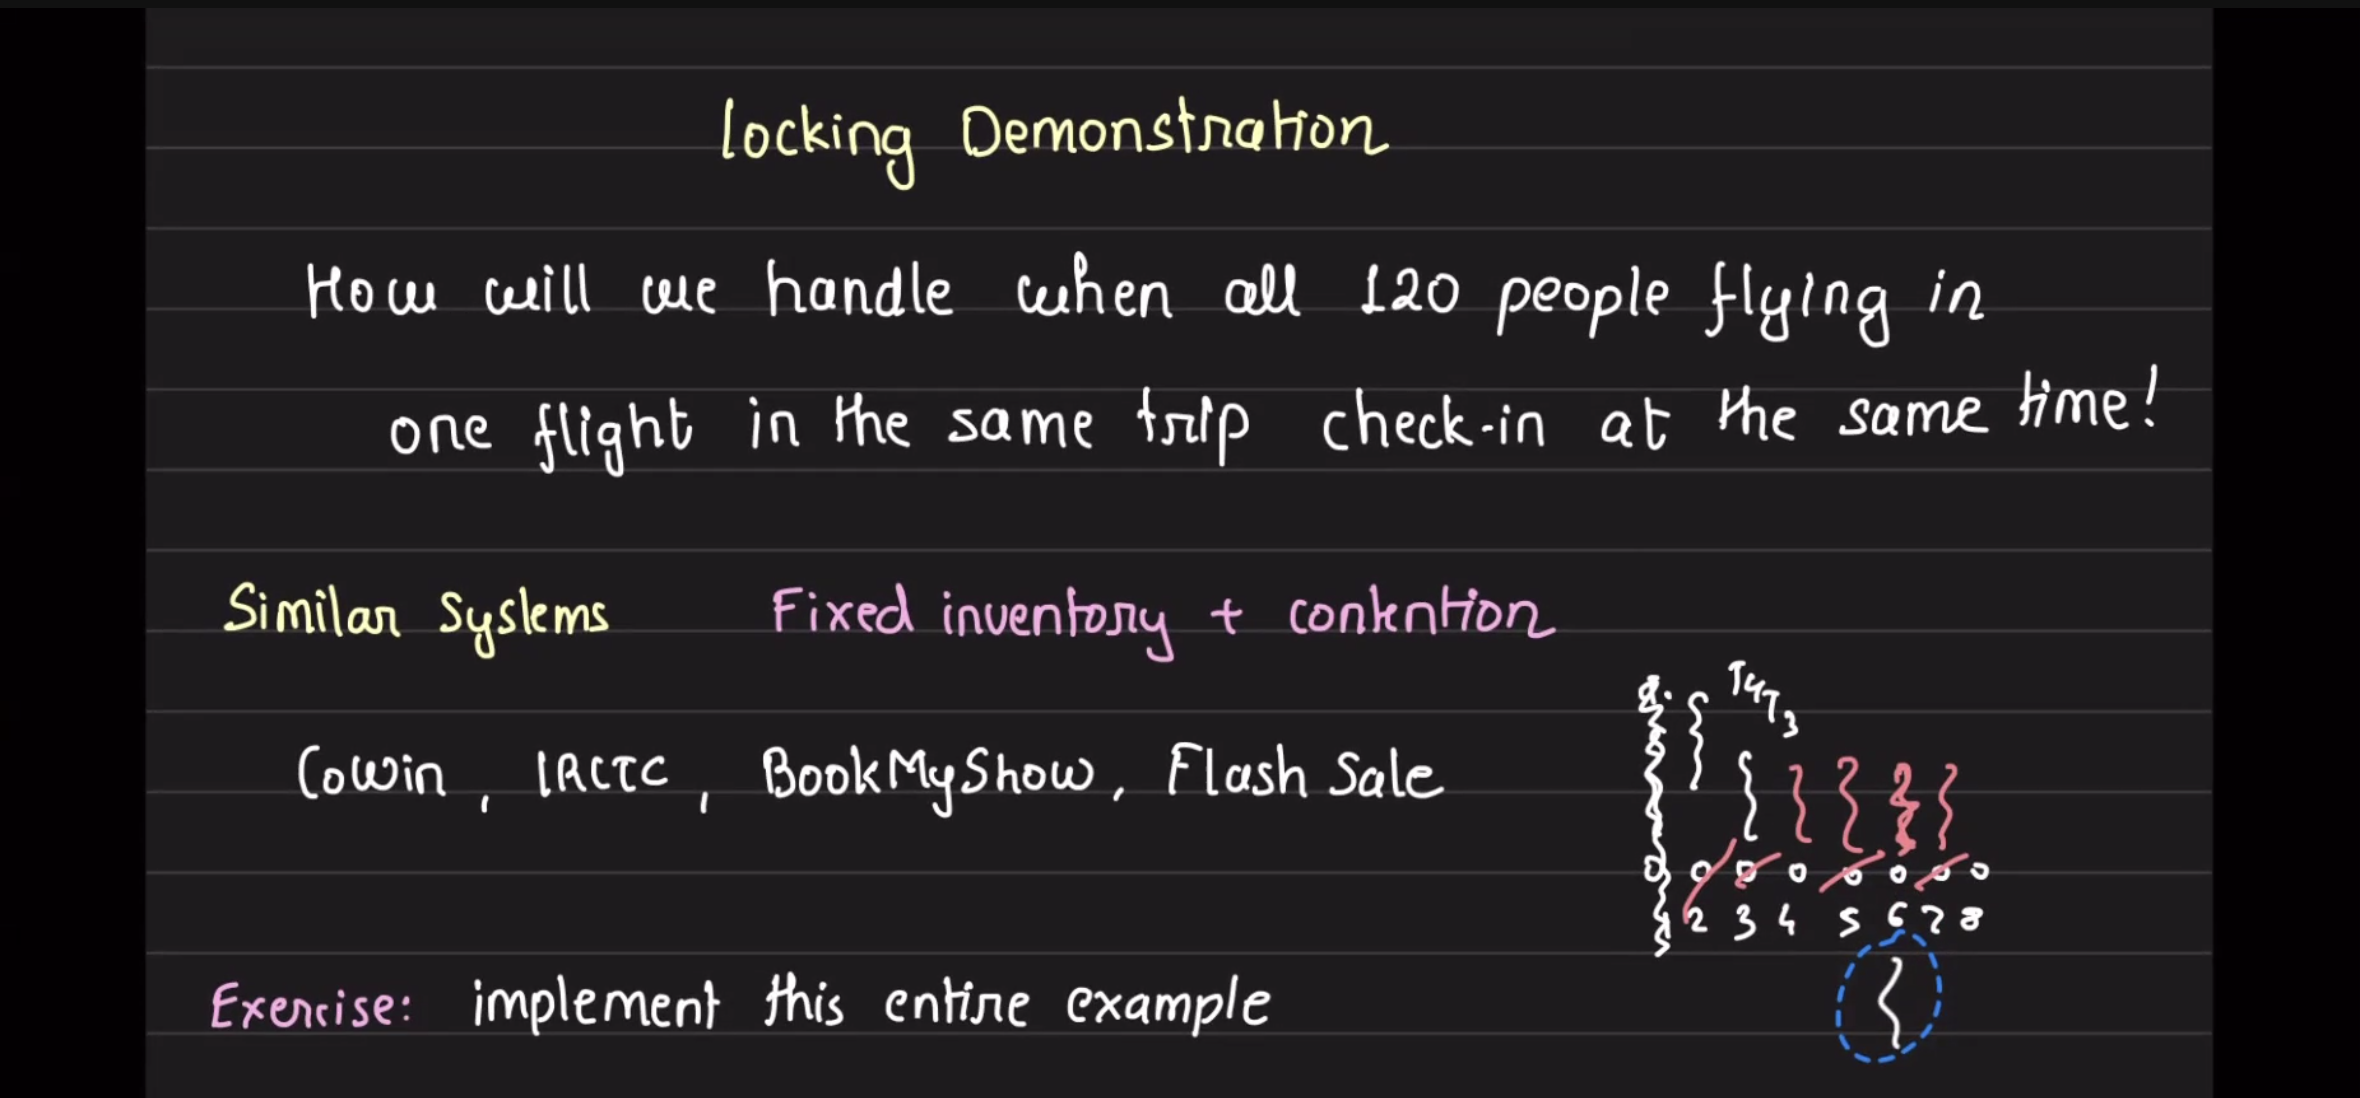 Locking Demonstration
How will we handle when all 120 people flying in
one flight in the same trip check-in at the same time!
Similar Systems Fixed inventory + contention
CoWin, IRCTC, BookMyShow, Flash Sale
2 3 4 5 6 7 8
Exercise: implement this entire example